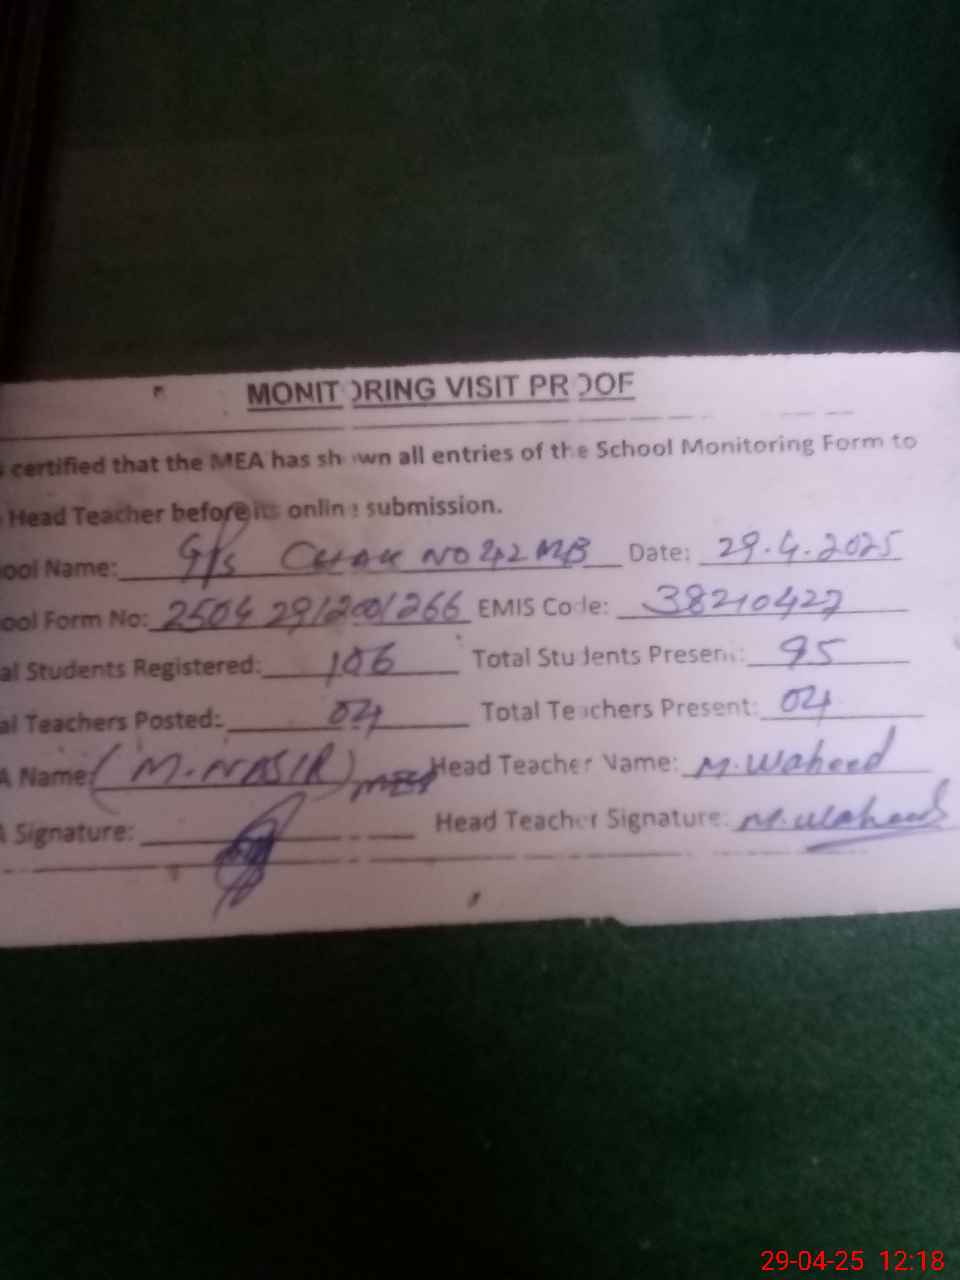 MONITORING VISIT PROOF
certified that the MEA has shown all entries of the School Monitoring Form to
Head Teacher before its online submission.
ool Name: G/P/S CHAK NO 42 MB Date: 29.4.2025
ool Form No: 2504 29/200/266 EMIS Code: 38210427
al Students Registered: 106 Total Students Present: 95
al Teachers Posted: 04 Total Teachers Present: 04
A Name: (M.NASIR) MEA Head Teacher Name: M.Waheed
A Signature: Head Teacher Signature: M.Waheed
29-04-25 12:18